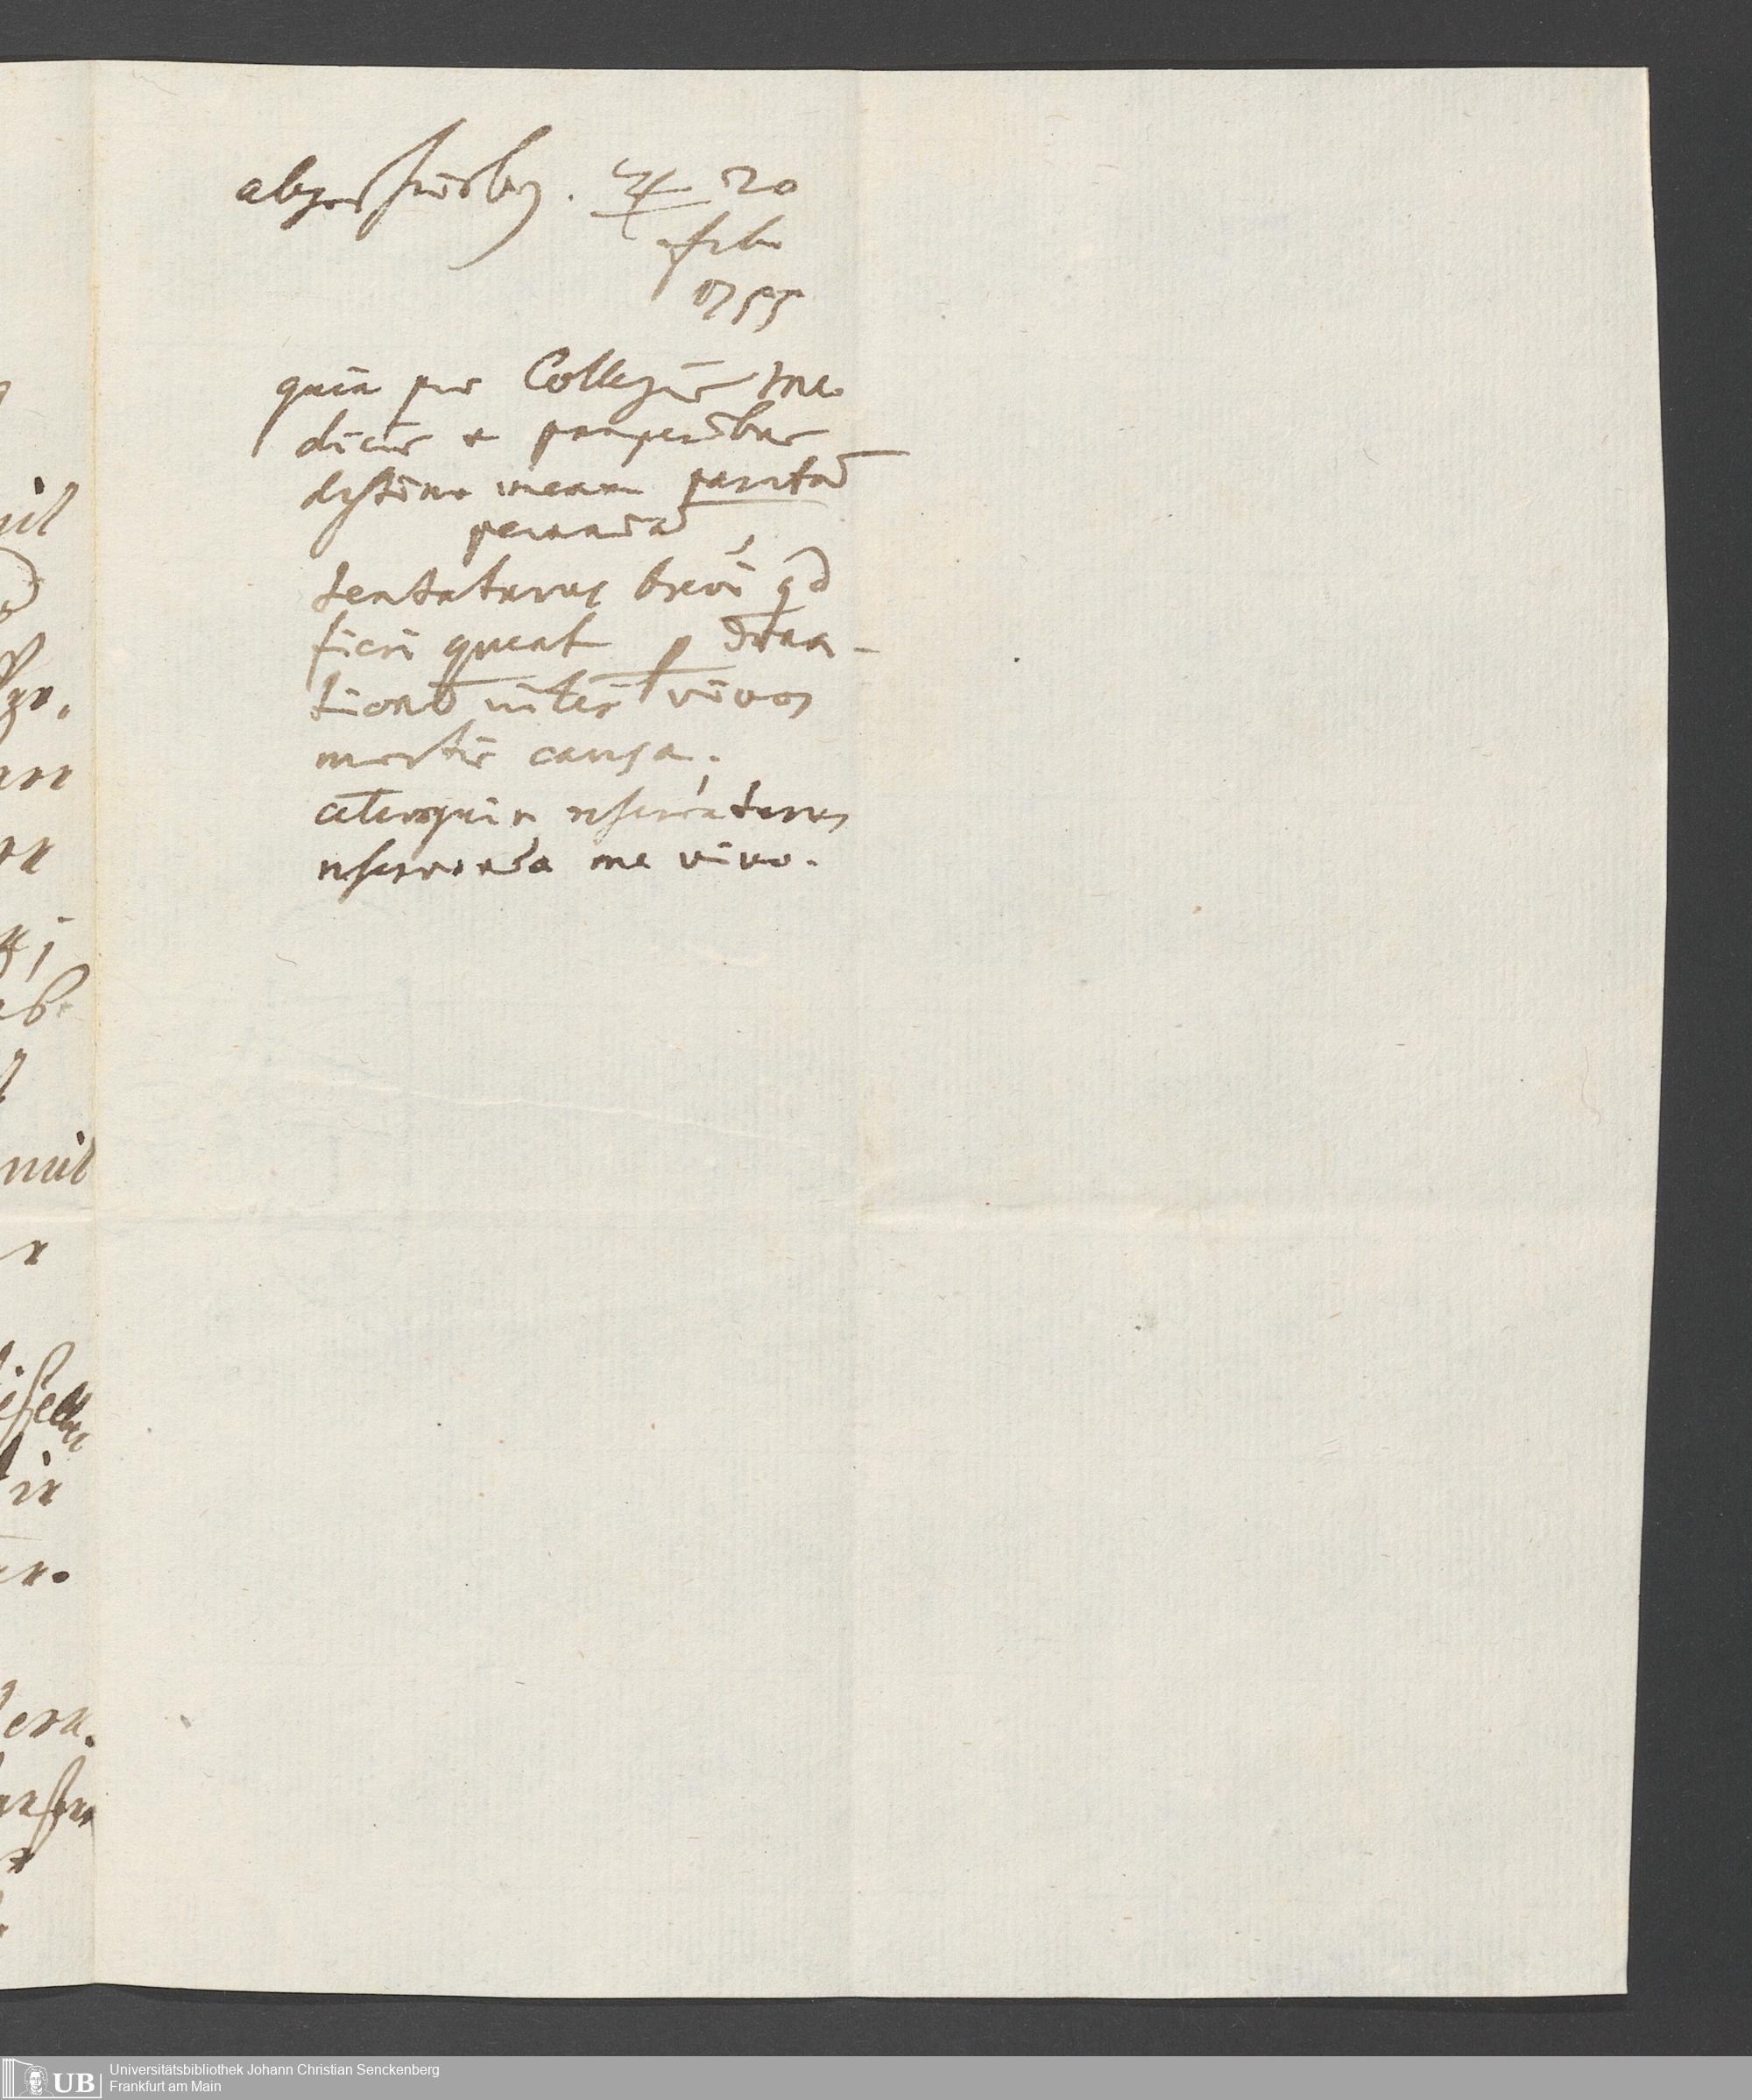 abgeschrieben. ♃ 20
febr
1755
quia pro Collegiu me
dicu e pauperibus
destino meam partem
pecunia
tentaturus brevi qd
fieri queat p dona-
tione inter vivos
mortis causa.
ceteroquin reservaturus
reservanda me vivo.
Universitätsbibliothek Johann Christian Senckenberg
Frankfurt am Main
UB